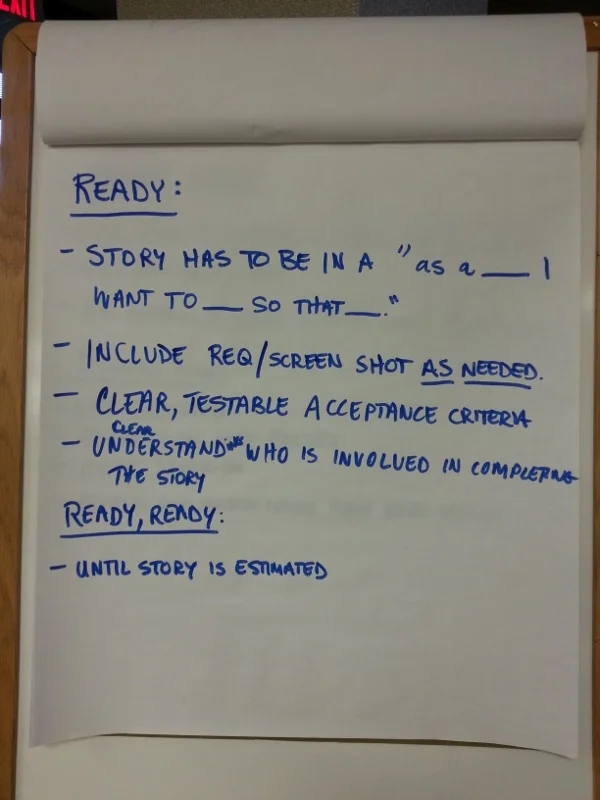 EXIT
READY:
- STORY HAS TO BE IN A "as a ___ I
WANT TO ___ SO THAT ___."
- INCLUDE REQ/SCREEN SHOT AS NEEDED.
- CLEAR, TESTABLE ACCEPTANCE CRITERIA
CLEAR
- UNDERSTAND WHO IS INVOLVED IN COMPLETING
THE STORY
READY, READY:
- UNTIL STORY IS ESTIMATED